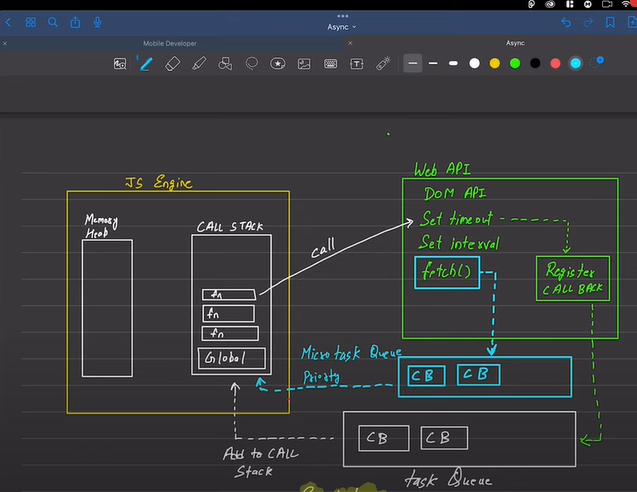 Async
Mobile Developer
Async
JS Engine
Memory
Heap
CALL STACK
fn
fn
fn
Global
call
Web API
DOM API
Set timeout
Set interval
fetch()
Register
CALL BACK
Microtask Queue
Priority
CB
CB
CB
CB
Add to CALL
Stack
task Queue